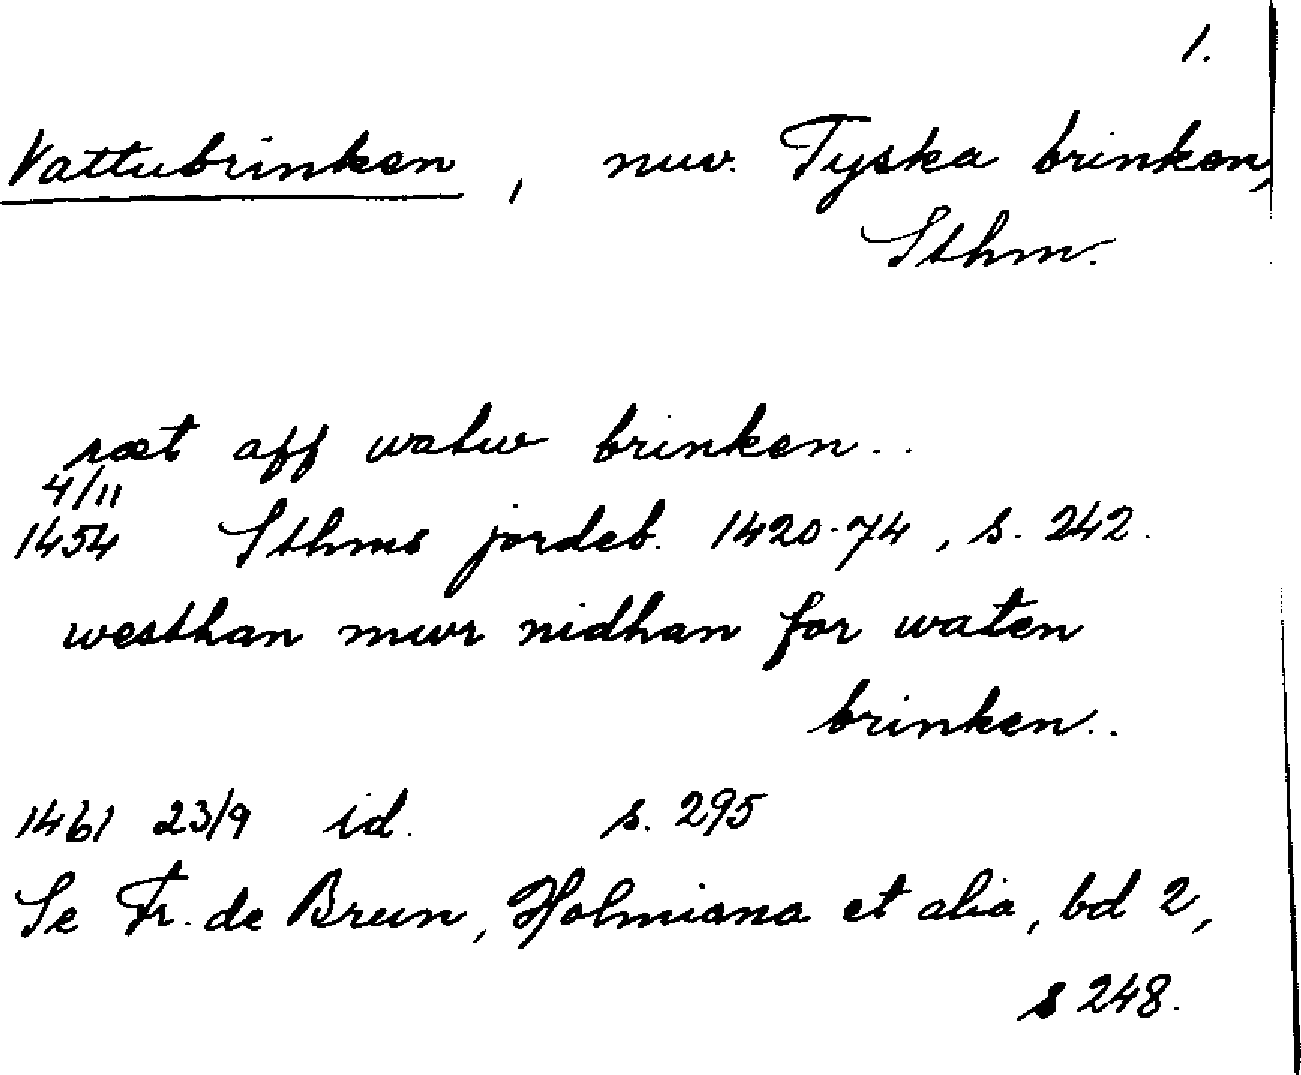 1.
Vattubrinken, nuv. Tyska brinken,
Sthm.
ræt aff watw brinken..
4/11
1454 Sthms jordeb. 1420-74, s. 242.
westhan mwr nidhan for waten
brinken..
1461 23/9 id. s. 295
Se Fr. de Brun, Holmiana et alia, bd 2,
s 248.